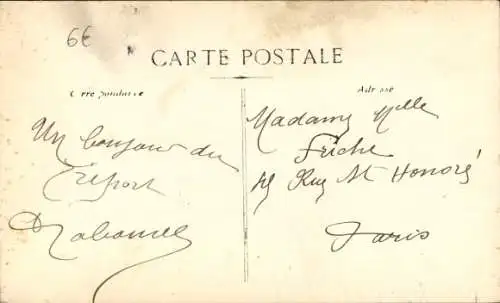 6€
CARTE POSTALE
Correspondance
Adresse
Un bonjour du
Tréport
Madame Melle
Friche
Rue St Honoré
Paris